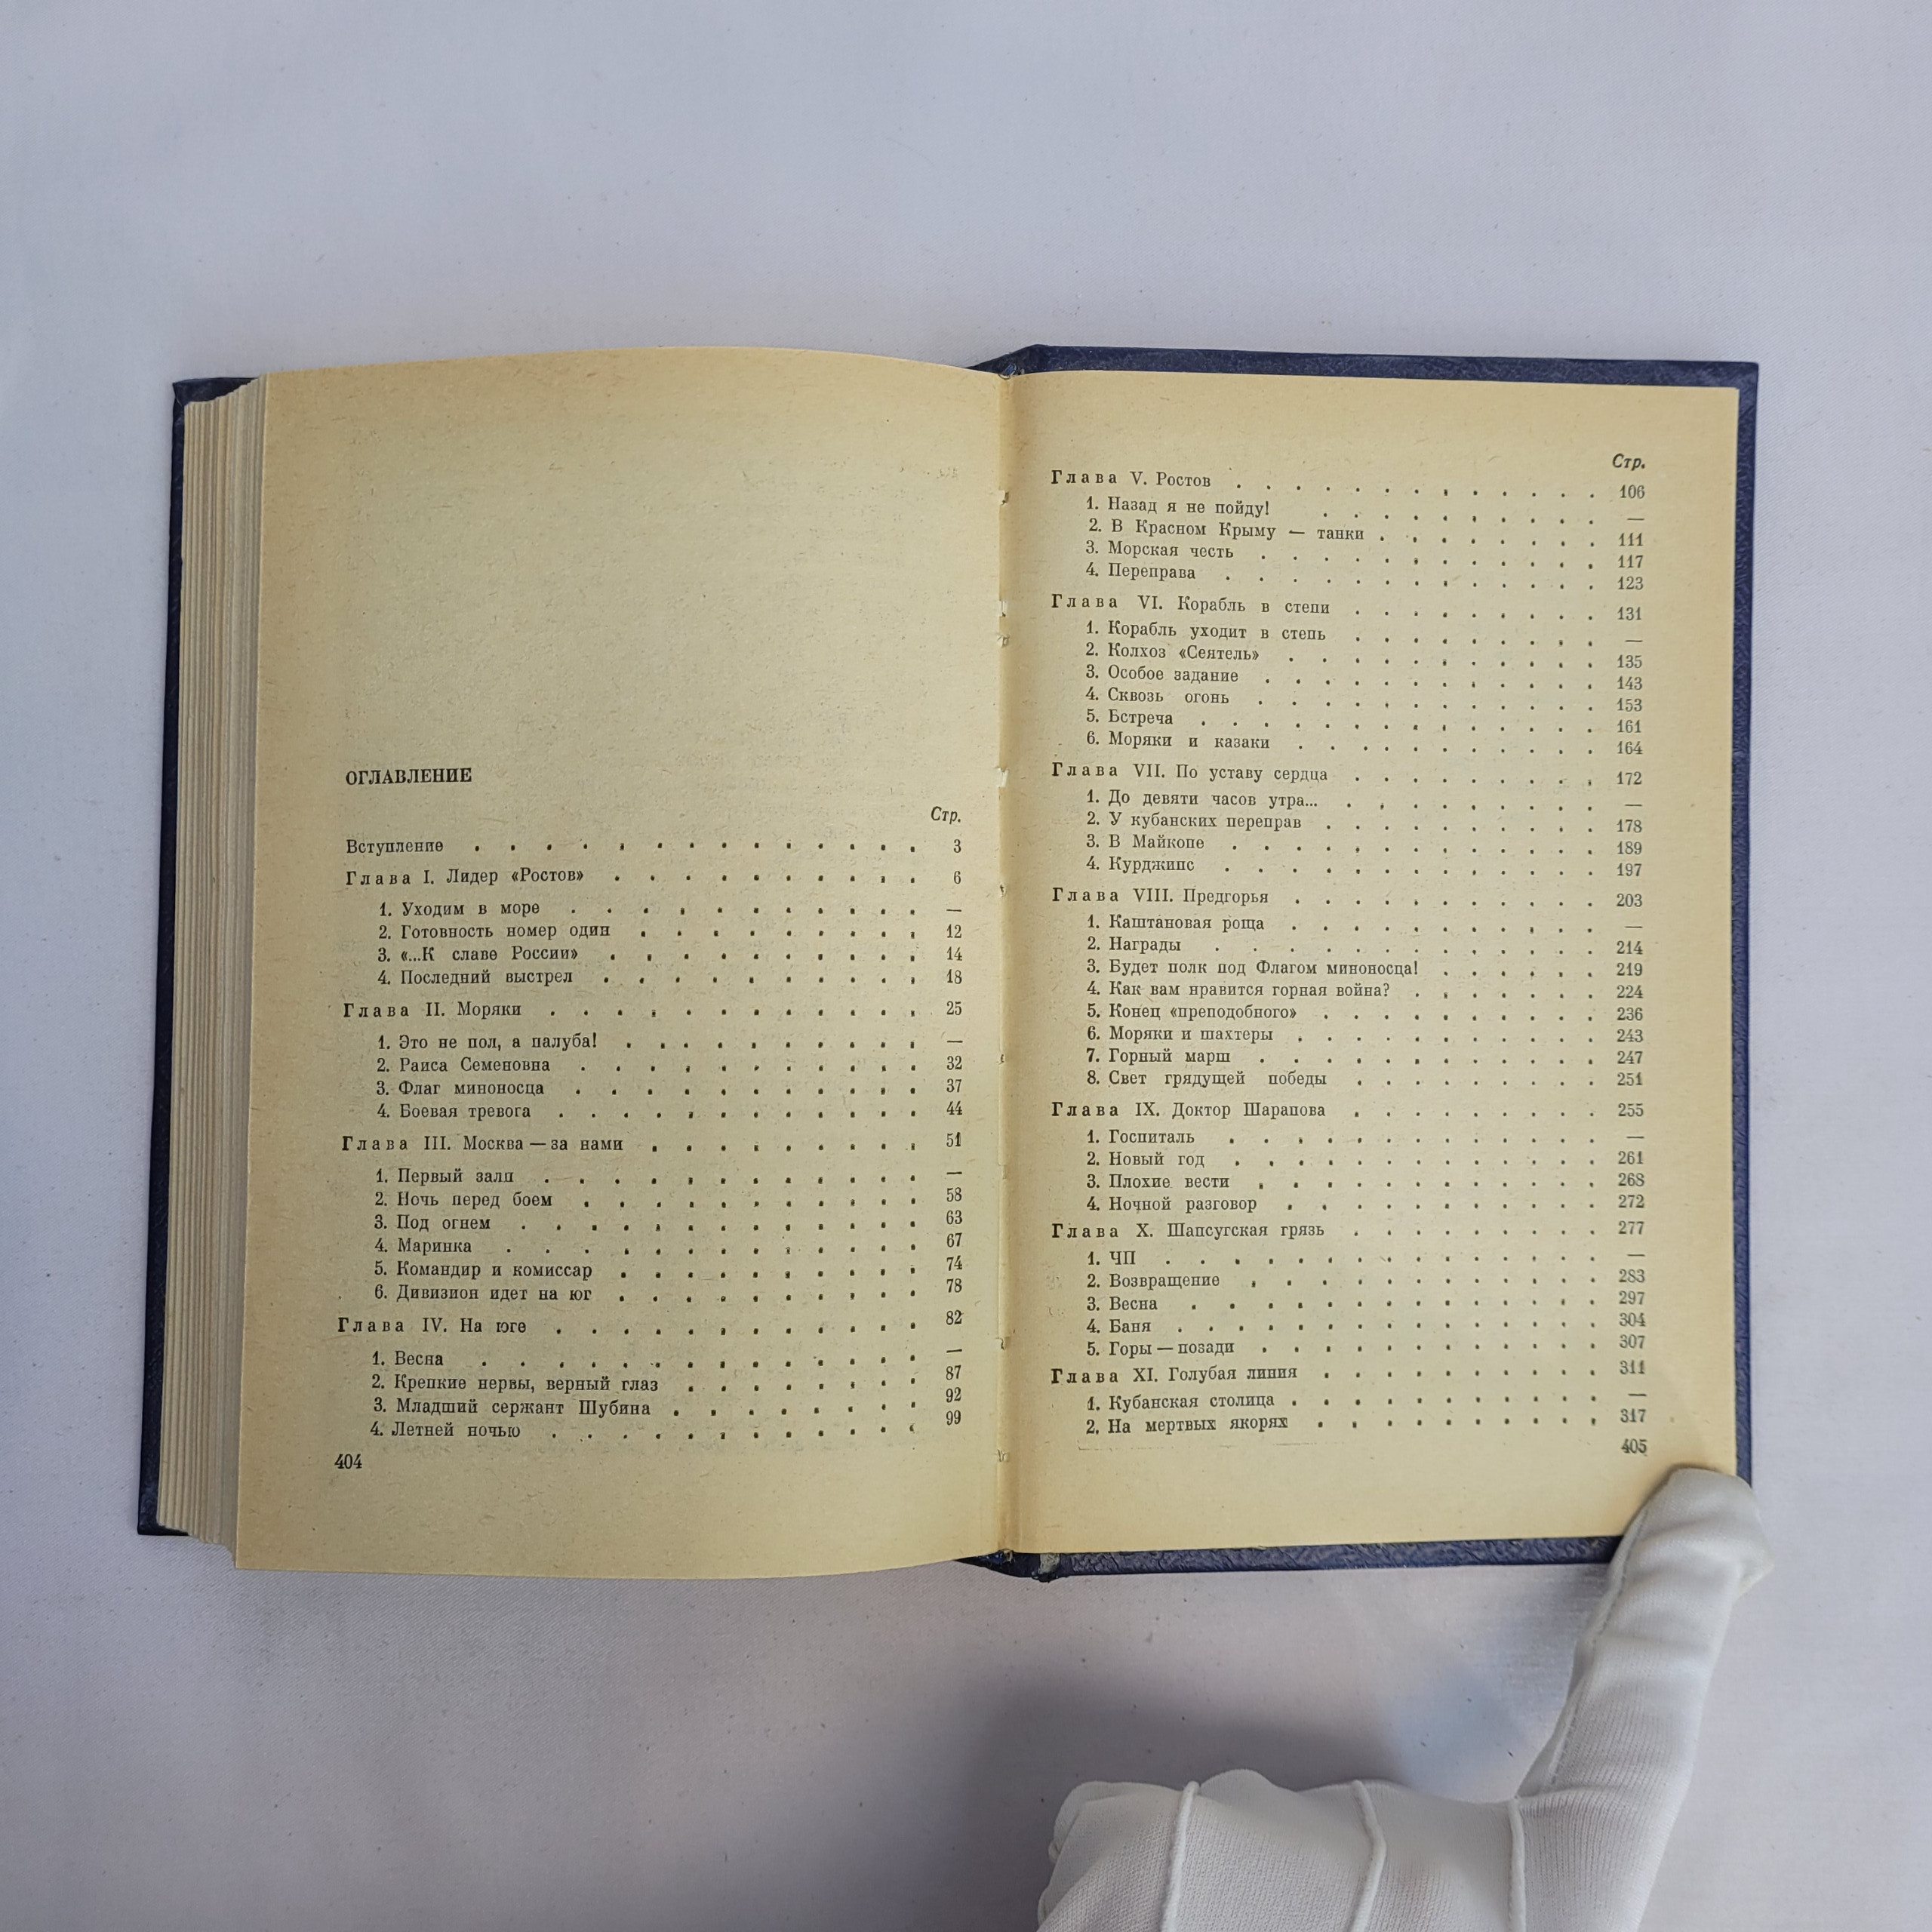 ОГЛАВЛЕНИЕ
Стр.
Вступление . . . . . . . . . . . . . 3
Глава I. Лидер «Ростов» . . . . . . . . . . 6
1. Уходим в море . . . . . . . . . . —
2. Готовность номер один . . . . . . . . . 12
3. «...К славе России» . . . . . . . . . . 14
4. Последний выстрел . . . . . . . . . . 18
Глава II. Моряки . . . . . . . . . . . . 25
1. Это не пол, а палуба! . . . . . . . . . . —
2. Раиса Семеновна . . . . . . . . . . . 32
3. Флаг миноносца . . . . . . . . . . . 37
4. Боевая тревога . . . . . . . . . . . 44
Глава III. Москва — за нами . . . . . . . . . 51
1. Первый залп . . . . . . . . . . . . —
2. Ночь перед боем . . . . . . . . . . . 58
3. Под огнем . . . . . . . . . . . . 63
4. Маринка . . . . . . . . . . . . 67
5. Командир и комиссар . . . . . . . . . . 74
6. Дивизион идет на юг . . . . . . . . . . 78
Глава IV. На юге . . . . . . . . . . . . 82
1. Весна . . . . . . . . . . . . . —
2. Крепкие нервы, верный глаз . . . . . . . . 87
3. Младший сержант Шубина . . . . . . . . 92
4. Летней ночью . . . . . . . . . . . 99
404
Стр.
Глава V. Ростов . . . . . . . . . . . . . 106
1. Назад я не пойду! . . . . . . . . . . —
2. В Красном Крыму — танки . . . . . . . . 111
3. Морская честь . . . . . . . . . . . . 117
4. Переправа . . . . . . . . . . . . . 123
Глава VI. Корабль в степи . . . . . . . . . 131
1. Корабль уходит в степь . . . . . . . . . —
2. Колхоз «Сеятель» . . . . . . . . . . . 135
3. Особое задание . . . . . . . . . . . . 143
4. Сквозь огонь . . . . . . . . . . . . 153
5. Встреча . . . . . . . . . . . . . . 161
6. Моряки и казаки . . . . . . . . . . . 164
Глава VII. По уставу сердца . . . . . . . . . 172
1. До девяти часов утра... . . . . . . . . . —
2. У кубанских переправ . . . . . . . . . . 178
3. В Майкопе . . . . . . . . . . . . . 189
4. Курджипс . . . . . . . . . . . . . 197
Глава VIII. Предгорья . . . . . . . . . . . 203
1. Каштановая роща . . . . . . . . . . . —
2. Награды . . . . . . . . . . . . . 214
3. Будет полк под Флагом миноносца! . . . . . . 219
4. Как вам нравится горная война? . . . . . . . 224
5. Конец «преподобного» . . . . . . . . . . 236
6. Моряки и шахтеры . . . . . . . . . . . 243
7. Горный марш . . . . . . . . . . . . 247
8. Свет грядущей победы . . . . . . . . . 251
Глава IX. Доктор Шарапова . . . . . . . . . 255
1. Госпиталь . . . . . . . . . . . . . —
2. Новый год . . . . . . . . . . . . . 261
3. Плохие вести . . . . . . . . . . . . 268
4. Ночной разговор . . . . . . . . . . . 272
Глава X. Шапсугская грязь . . . . . . . . . 277
1. ЧП . . . . . . . . . . . . . . . —
2. Возвращение . . . . . . . . . . . . 283
3. Весна . . . . . . . . . . . . . . 297
4. Баня . . . . . . . . . . . . . . . 304
5. Горы — позади . . . . . . . . . . . . 307
Глава XI. Голубая линия . . . . . . . . . . 311
1. Кубанская столица . . . . . . . . . . . —
2. На мертвых якорях . . . . . . . . . . 317
405